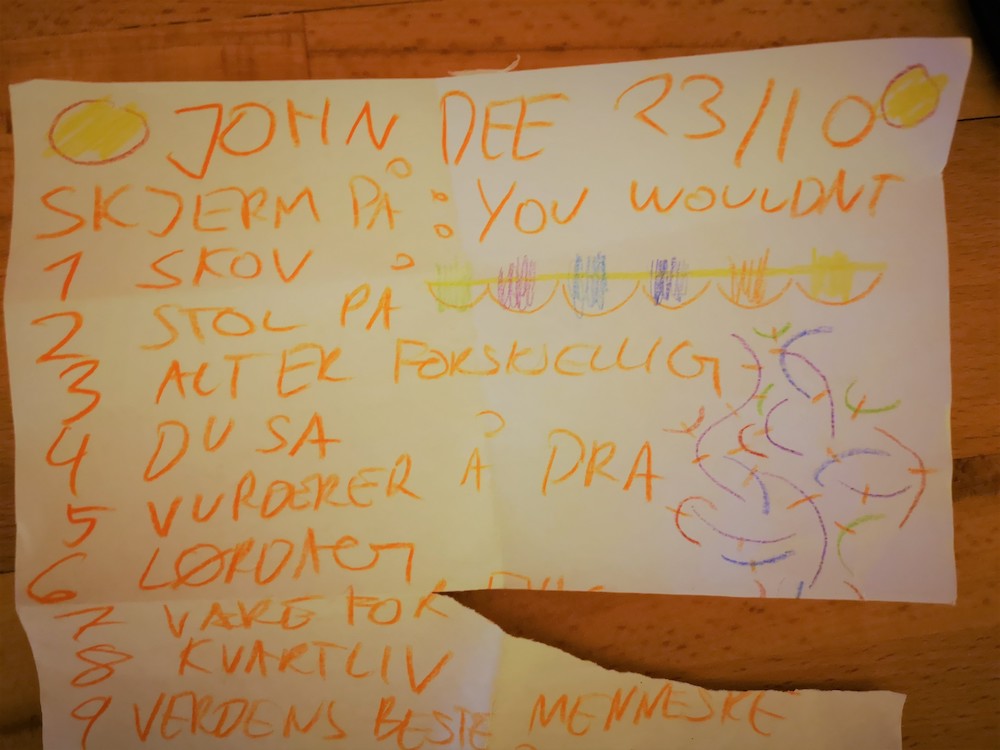 JOHN DEE 23/10
SKJERM PÅ: YOU WOULDNT
1 SKOV
2 STOL PÅ
3 ALT ER FORSKJELLIG
4 DU SA
5 VURDERER Å DRA
6 LØRDAG
7 VARE FOR
8 KVARTLIV
9 VERDENS BESTE MENNESKE